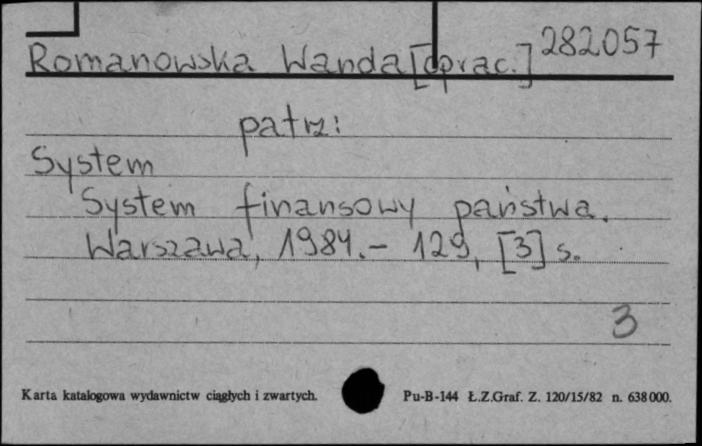 Romanowska Wanda [oprac.] 282057
patrz:
System
System finansowy państwa.
Warszawa, 1984. - 129, [3] s.
3
Karta katalogowa wydawnictw ciągłych i zwartych. Pu-B-144 Ł.Z.Graf. Z. 120/15/82 n. 638000.